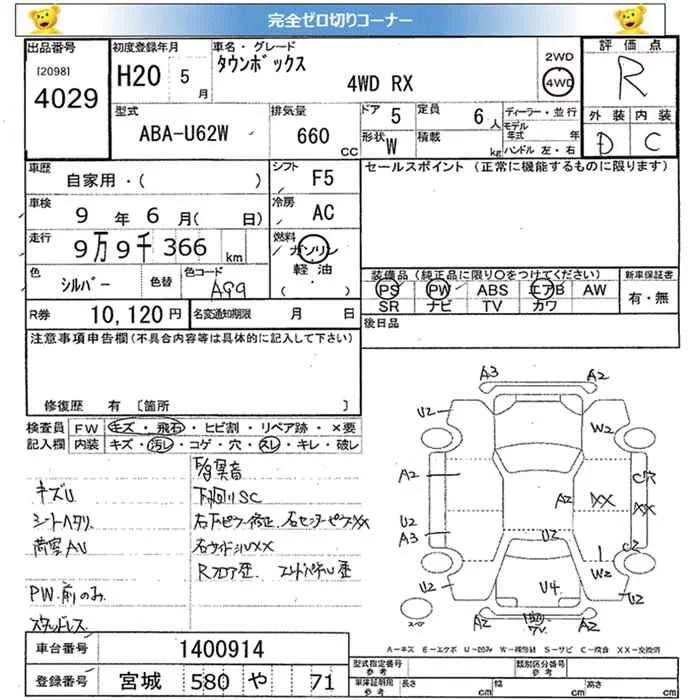 完全ゼロ切りコーナー
出品番号
[2098]
4029
初度登録年月
H20 5月
車名・グレード
タウンボックス
4WD RX
2WD
4WD
評価点
R
型式
ABA-U62W
排気量
660 CC
ドア 5
定員 6人
形状 W
積載 kg
ディーラー・並行
モデル年式 年
ハンドル 左・右
外装 内装
D C
車歴
自家用・( )
シフト F5
セールスポイント (正常に機能するものに限ります)
車検
9年 6月( 日)
冷房 AC
走行
9万9千366 km
燃料
ガソリン
軽油
(・)
色
シルバー
色替
色コード
A99
装備品(純正品に限り〇をつけてください)
PS PW ABS エアB AW
SR ナビ TV カワ
新車保証書
有・無
R券 10,120円
名変通知期限 月 日
後日品
注意事項申告欄(不具合内容等は具体的に記入して下さい)
修復歴 有 [箇所 ]
検査員記入欄
FW キズ・飛石・ヒビ割・リペア跡・×要
内装 キズ・汚レ・コゲ・穴・スレ・キレ・破レ
キズU
シートヘタリ
荷室AU
PW前のみ
スタッドレス
下回りSC
A3 A2
U2 W2
A2 A2 XX
U2 XX
A3 U2 C2
W2
U2 U4 U2
A2 A2
A-キズ E-エクボ U-凹み W-補修跡 S-サビ C-腐食 XX-交換済
車台番号 1400914
登録番号 宮城 580 や 71
型式指定番号 参考
類別区分番号 参考
車庫証明用 参考
長さ cm 幅 cm 高さ cm